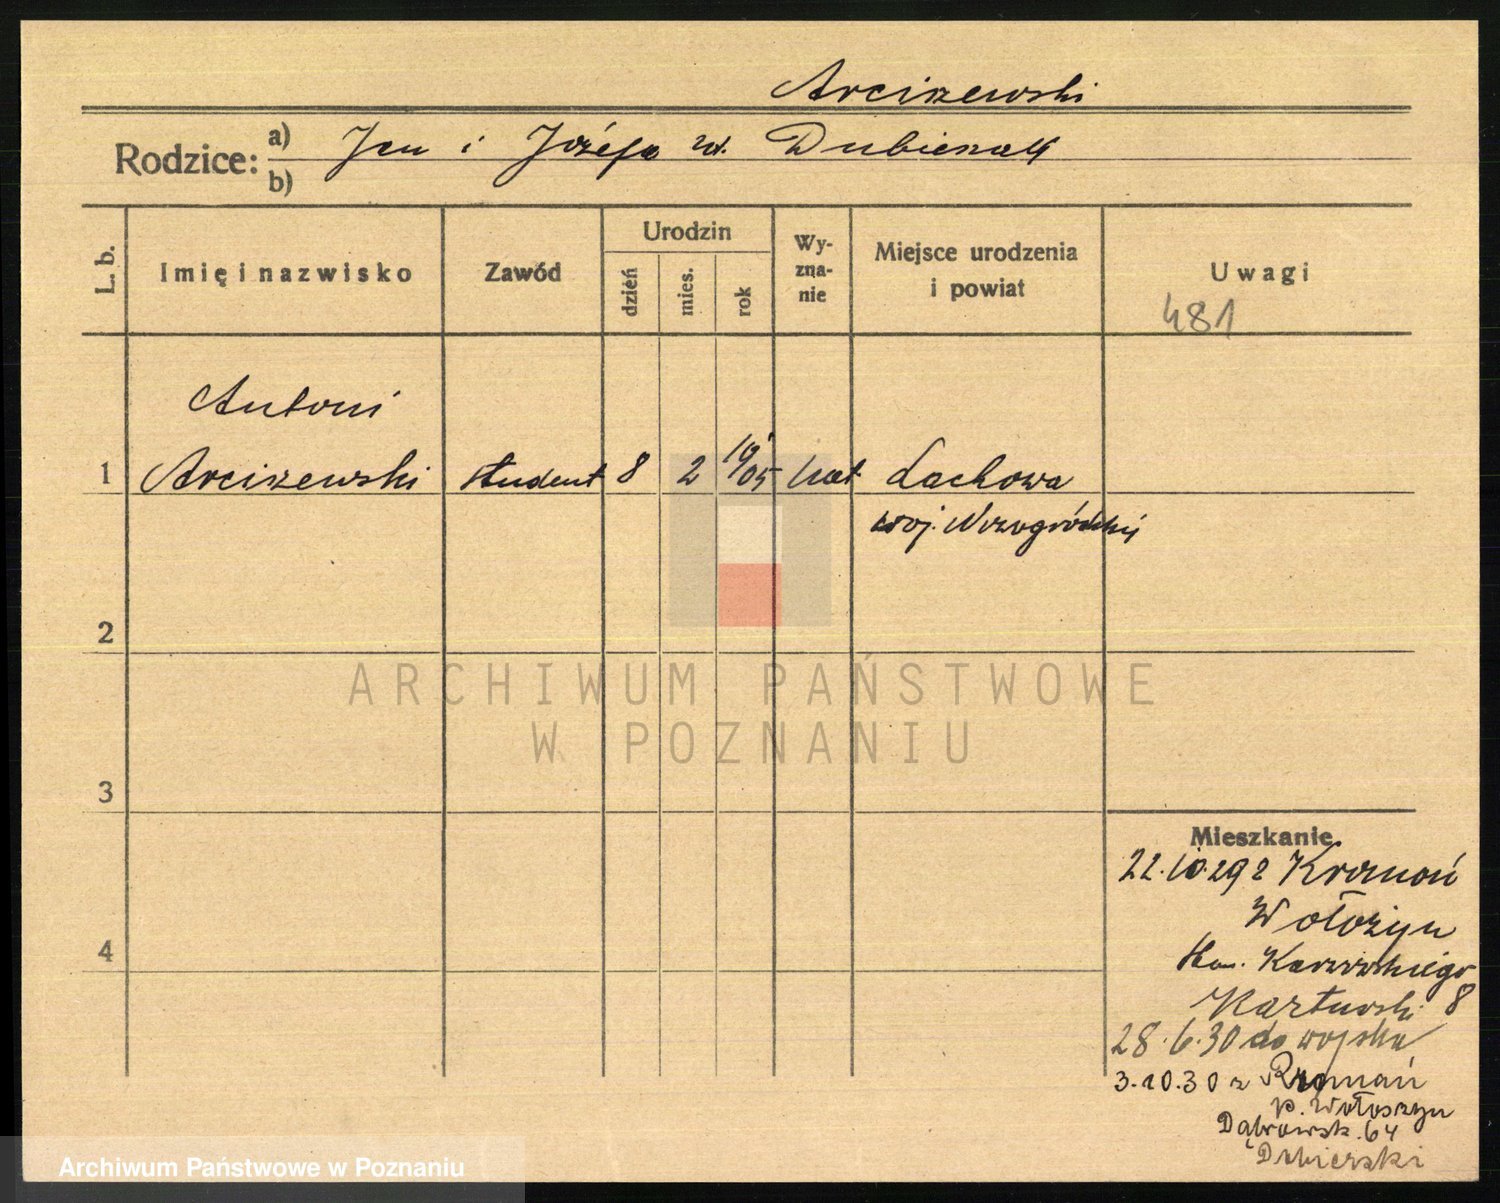 Arciszewski
Rodzice: a) Jan i Józefa z d.
b)
L. b. Imię i nazwisko Zawód Urodzin dzień mies. rok Wyznanie Miejsce urodzenia i powiat Uwagi
481
Antoni
1 Arciszewski student 8 2 1905 kat Lachowa
woj. Nowogródzkij
2
ARCHIWUM PAŃSTWOWE
W POZNANIU
3
Mieszkanie
22.10.29 z
Wołożyn
8
4
28.6.30 do wojska
3.10.30 z
p. Wołoszyn
Dąbrowsk. 64
Archiwum Państwowe w Poznaniu